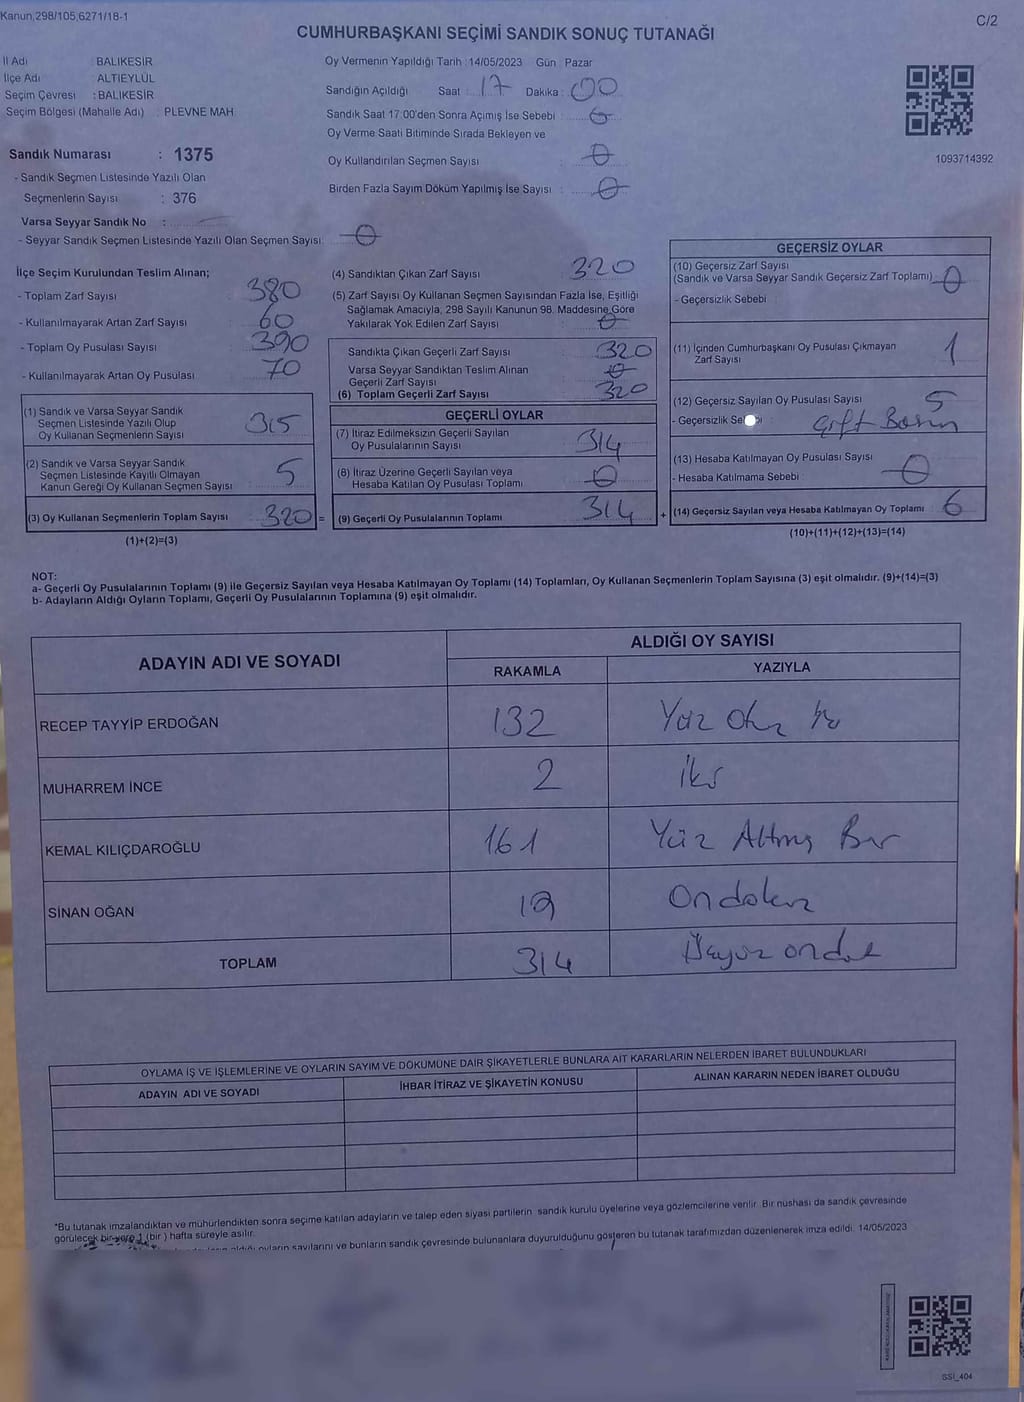 Kanun,298/105,6271/18-1
C/2
CUMHURBAŞKANI SEÇİMİ SANDIK SONUÇ TUTANAĞI
İl Adı BALIKESİR
İlçe Adı ALTIEYLÜL
Seçim Çevresi : BALIKESİR
Seçim Bölgesi (Mahalle Adı) : PLEVNE MAH
Sandık Numarası : 1375
- Sandık Seçmen Listesinde Yazılı Olan
Seçmenlerin Sayısı : 376
Varsa Seyyar Sandık No :
- Seyyar Sandık Seçmen Listesinde Yazılı Olan Seçmen Sayısı: 0
Oy Vermenin Yapıldığı Tarih :14/05/2023 Gün Pazar
Sandığın Açıldığı Saat : 17 Dakika : 00
Sandık Saat 17:00'den Sonra Açımış İse Sebebi :
Oy Verme Saati Bitiminde Sırada Bekleyen ve
Oy Kullandırılan Seçmen Sayısı : 0
Birden Fazla Sayım Döküm Yapılmış İse Sayısı : 0
1093714392
İlçe Seçim Kurulundan Teslim Alınan;
- Toplam Zarf Sayısı 380
- Kullanılmayarak Artan Zarf Sayısı 60
- Toplam Oy Pusulası Sayısı 390
- Kullanılmayarak Artan Oy Pusulası 70
(1) Sandık ve Varsa Seyyar Sandık
Seçmen Listesinde Yazılı Olup
Oy Kullanan Seçmenlerin Sayısı 315
(2) Sandık ve Varsa Seyyar Sandık
Seçmen Listesinde Kayıtlı Olmayan
Kanun Gereği Oy Kullanan Seçmen Sayısı 5
(3) Oy Kullanan Seçmenlerin Toplam Sayısı 320 =
(1)+(2)=(3)
(4) Sandıktan Çıkan Zarf Sayısı 320
(5) Zarf Sayısı Oy Kullanan Seçmen Sayısından Fazla İse, Eşitliği
Sağlamak Amacıyla, 298 Sayılı Kanunun 98. Maddesine Göre
Yakılarak Yok Edilen Zarf Sayısı 0
Sandıkta Çıkan Geçerli Zarf Sayısı 320
Varsa Seyyar Sandıktan Teslim Alınan
Geçerli Zarf Sayısı 0
(6) Toplam Geçerli Zarf Sayısı 320
GEÇERLİ OYLAR
(7) İtiraz Edilmeksizin Geçerli Sayılan
Oy Pusulalarının Sayısı 314
(8) İtiraz Üzerine Geçerli Sayılan veya
Hesaba Katılan Oy Pusulası Toplamı 0
(9) Geçerli Oy Pusulalarının Toplamı 314 +
GEÇERSİZ OYLAR
(10) Geçersiz Zarf Sayısı
(Sandık ve Varsa Seyyar Sandık Geçersiz Zarf Toplamı) 0
- Geçersizlik Sebebi
(11) İçinden Cumhurbaşkanı Oy Pusulası Çıkmayan
Zarf Sayısı 1
(12) Geçersiz Sayılan Oy Pusulası Sayısı 5
- Geçersizlik
(13) Hesaba Katılmayan Oy Pusulası Sayısı
- Hesaba Katılmama Sebebi 0
(14) Geçersiz Sayılan veya Hesaba Katılmayan Oy Toplamı 6
(10)+(11)+(12)+(13)=(14)
NOT:
a- Geçerli Oy Pusulalarının Toplamı (9) ile Geçersiz Sayılan veya Hesaba Katılmayan Oy Toplamı (14) Toplamları, Oy Kullanan Seçmenlerin Toplam Sayısına (3) eşit olmalıdır. (9)+(14)=(3)
b- Adayların Aldığı Oyların Toplamı, Geçerli Oy Pusulalarının Toplamına (9) eşit olmalıdır.
ADAYIN ADI VE SOYADI ALDIĞI OY SAYISI
RAKAMLA YAZIYLA
RECEP TAYYİP ERDOĞAN 132 Yüz Otuz
MUHARREM İNCE 2 iki
KEMAL KILIÇDAROĞLU 161 Yüz Altmış Bir
SİNAN OĞAN 19 Ondokuz
TOPLAM 314
OYLAMA İŞ VE İŞLEMLERİNE VE OYLARIN SAYIM VE DÖKÜMÜNE DAİR ŞİKAYETLERLE BUNLARA AİT KARARLARIN NELERDEN İBARET BULUNDUKLARI
ADAYIN ADI VE SOYADI İHBAR İTİRAZ VE ŞİKAYETİN KONUSU ALINAN KARARIN NEDEN İBARET OLDUĞU
*Bu tutanak imzalandıktan ve mühürlendikten sonra seçime katılan adayların ve talep eden siyasi partilerin sandık kurulu üyelerine veya gözlemcilerine verilir. Bir nüshası da sandık çevresinde
görülecek bir yere 1 (bir ) hafta süreyle asılır.
oyların sayılarını ve bunların sandık çevresinde bulunanlara duyurulduğunu gösteren bu tutanak tarafımızdan düzenlenerek imza edildi. 14/05/2023
SSI_404